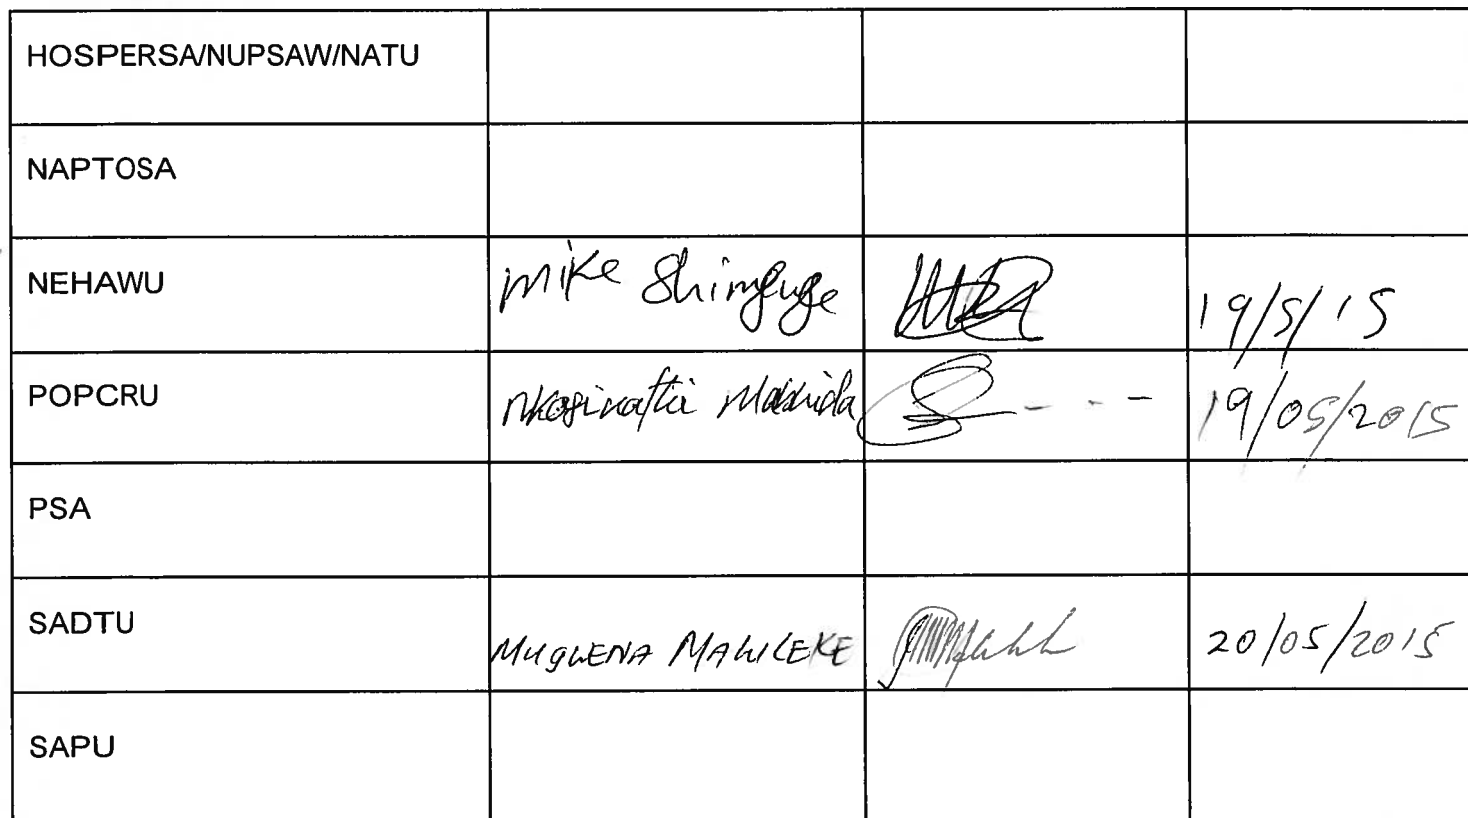 HOSPERSA/NUPSAW/NATU
NAPTOSA
NEHAWU mike Shingange 19/5/15
POPCRU 19/05/2015
PSA
SADTU MUGWENA MALULEKE 20/05/2015
SAPU